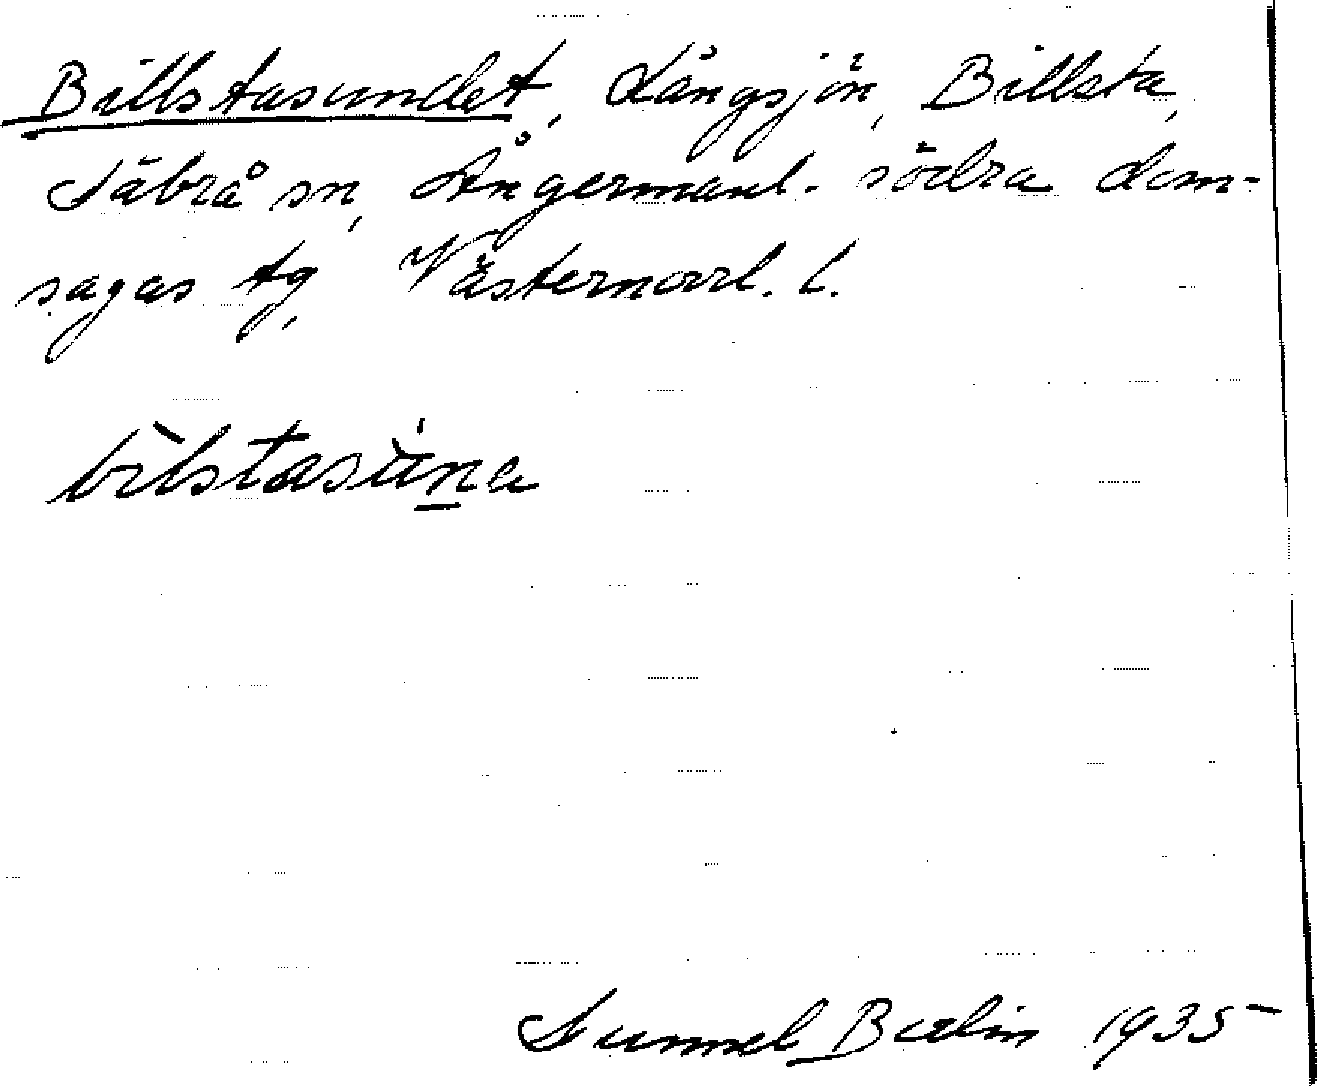 Billstasundet, Långsjön, Billsta,
Säbrå sn, Ångermanl. södra dom-
sagas tg, Västernorrl. l.
bilstasùna
Gunnel Bodin 1935